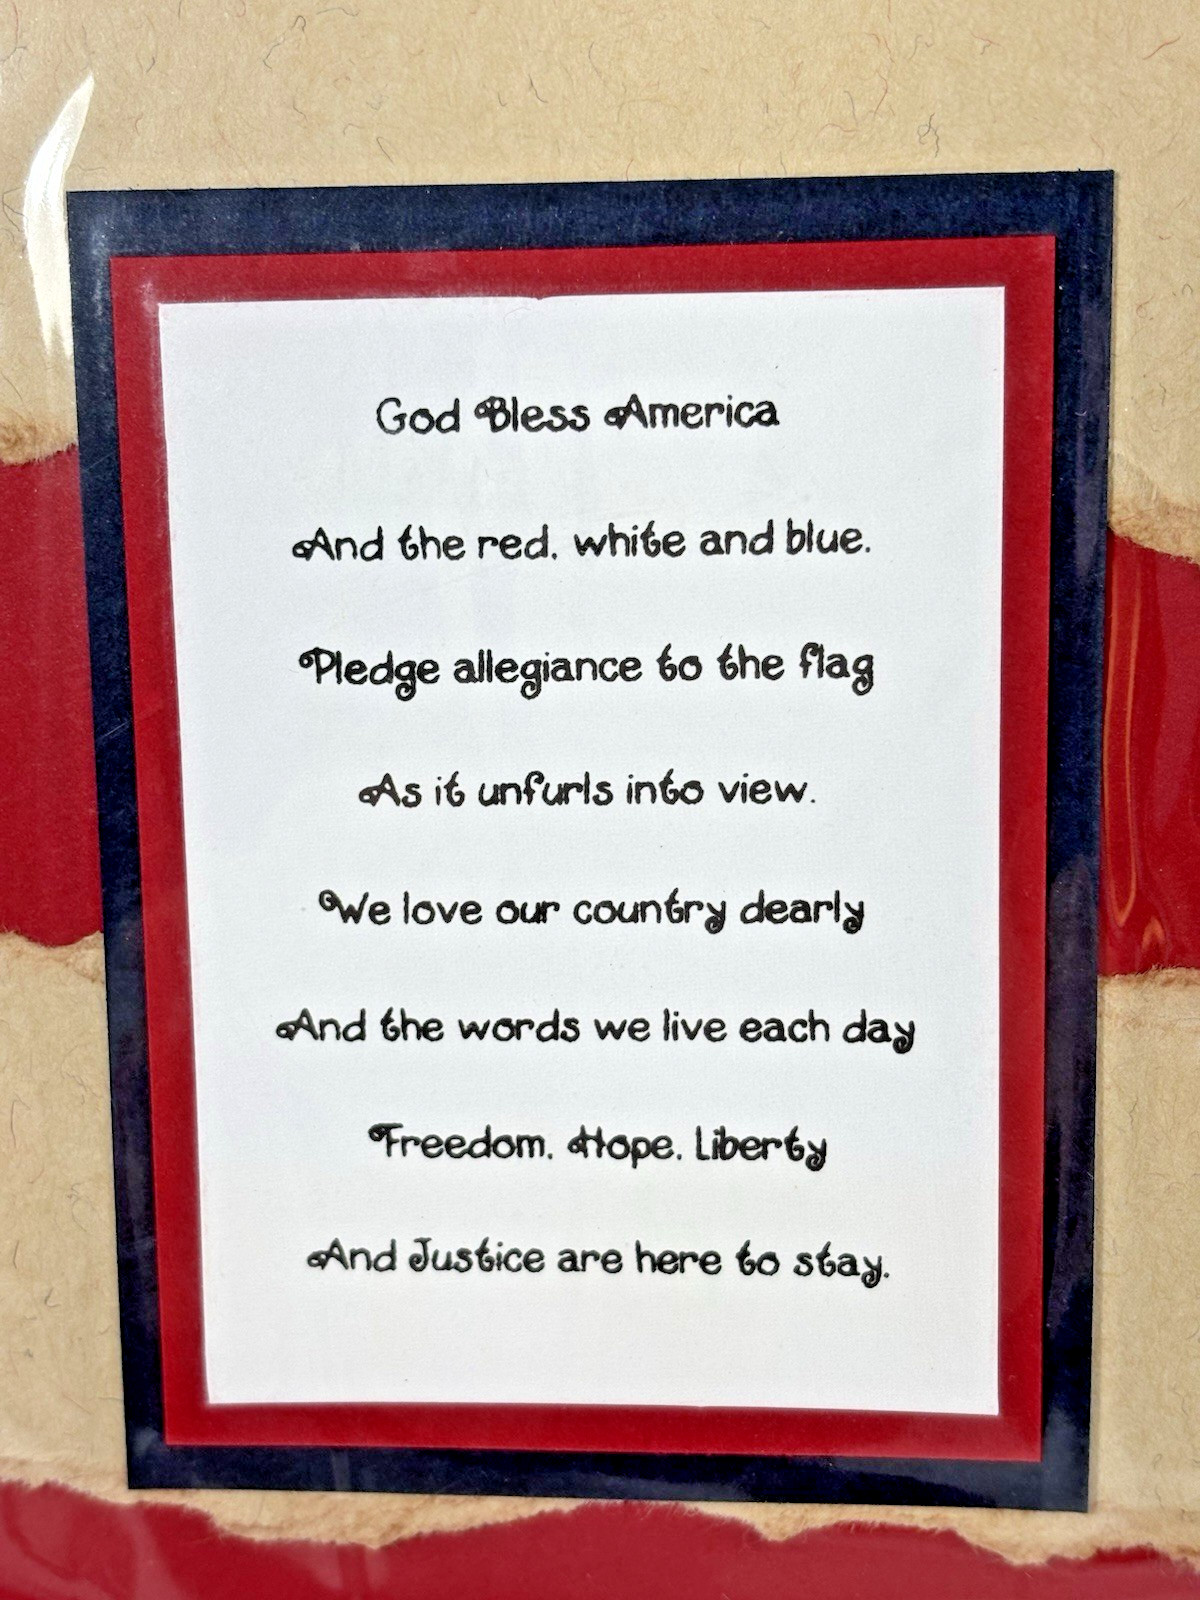 God Bless America
And the red, white and blue.
Pledge allegiance to the flag
As it unfurls into view.
We love our country dearly
And the words we live each day
Freedom, Hope, Liberty
And Justice are here to stay.